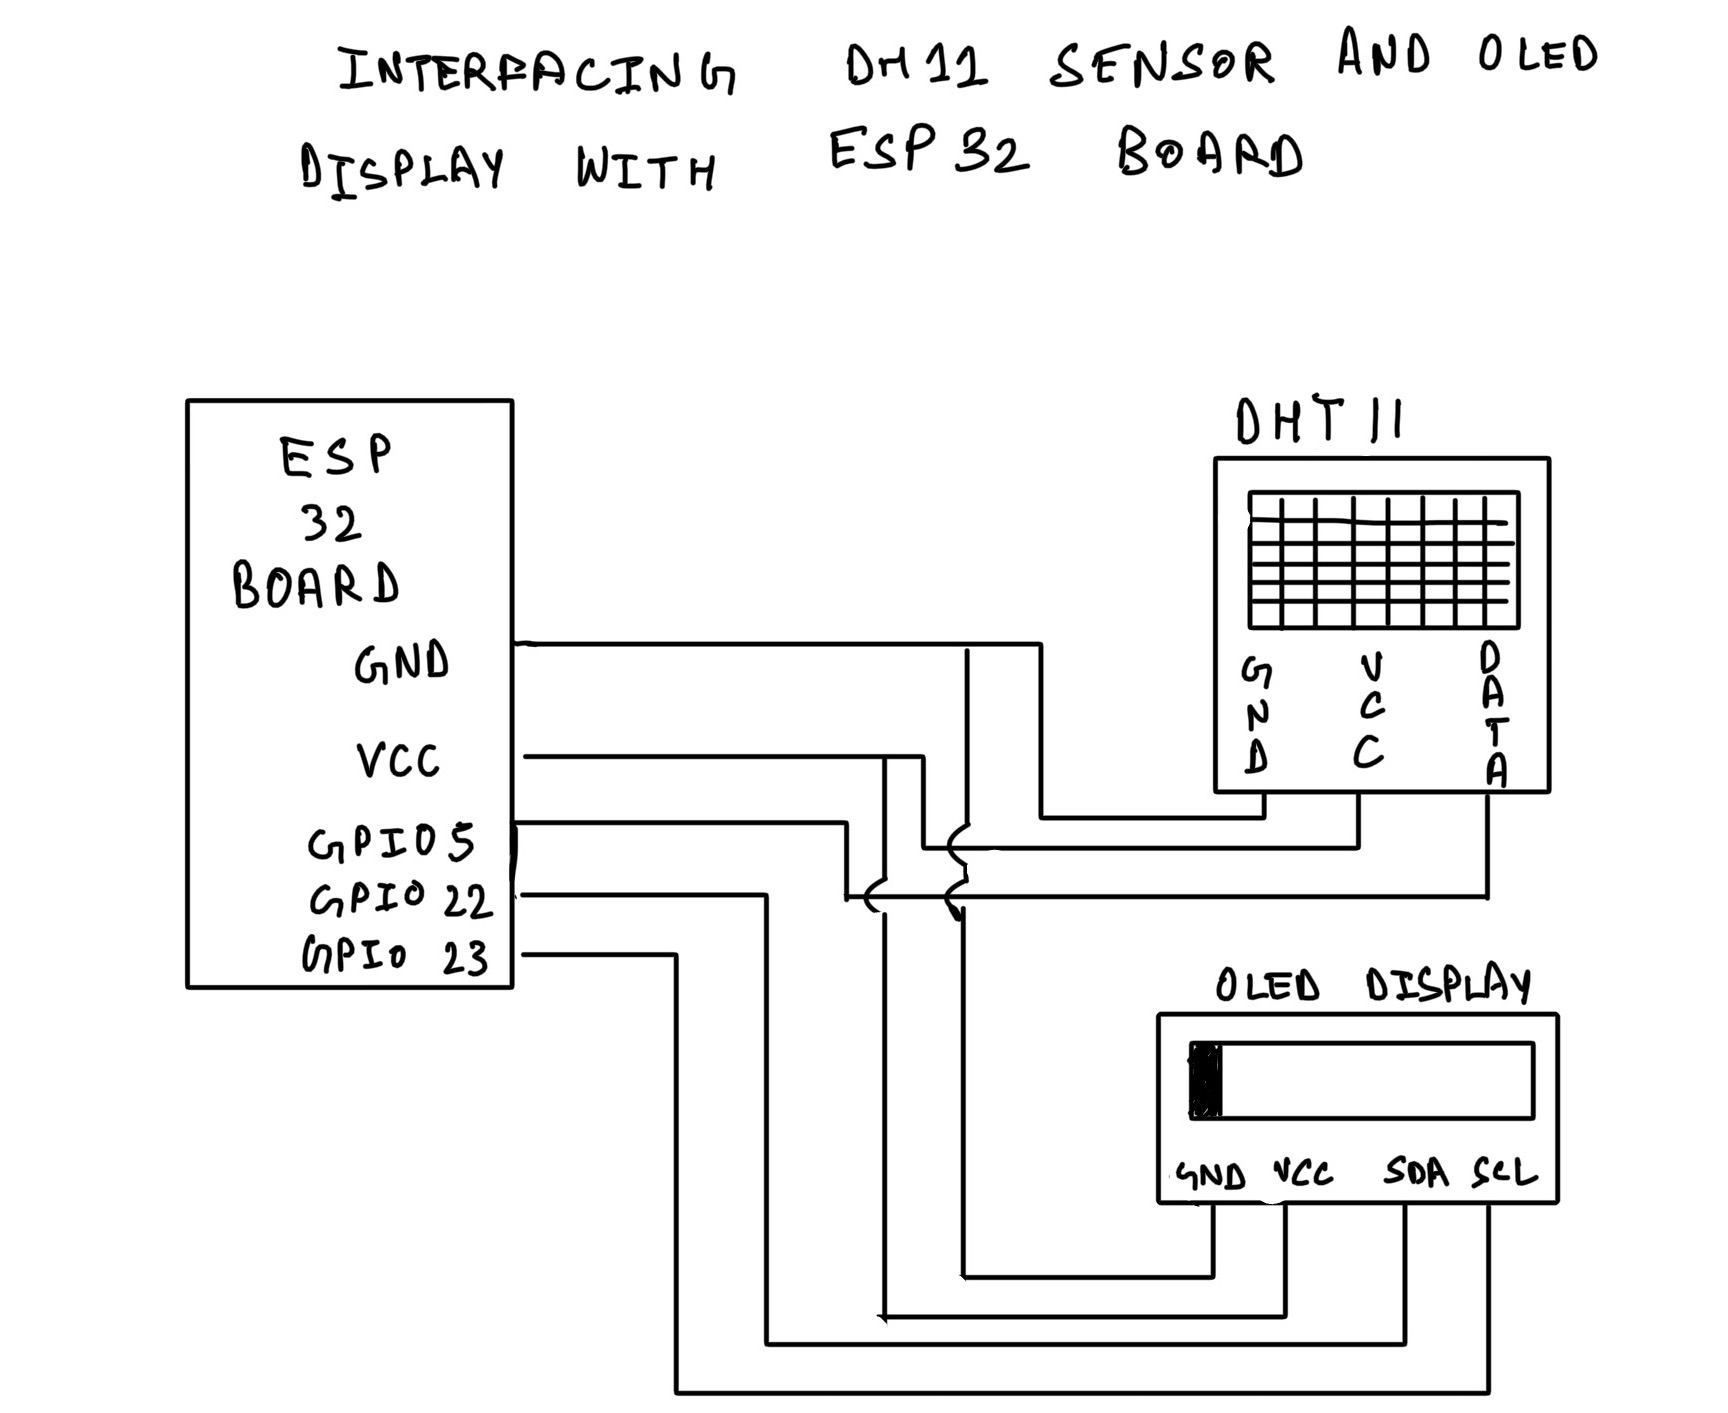 INTERFACING DH11 SENSOR AND OLED
DISPLAY WITH ESP32 BOARD
DHT 11
ESP
32
BOARD
GND
VCC
GPIO 5
GPIO 22
GPIO 23
GND
VCC
DATA
OLED DISPLAY
GND VCC SDA SCL